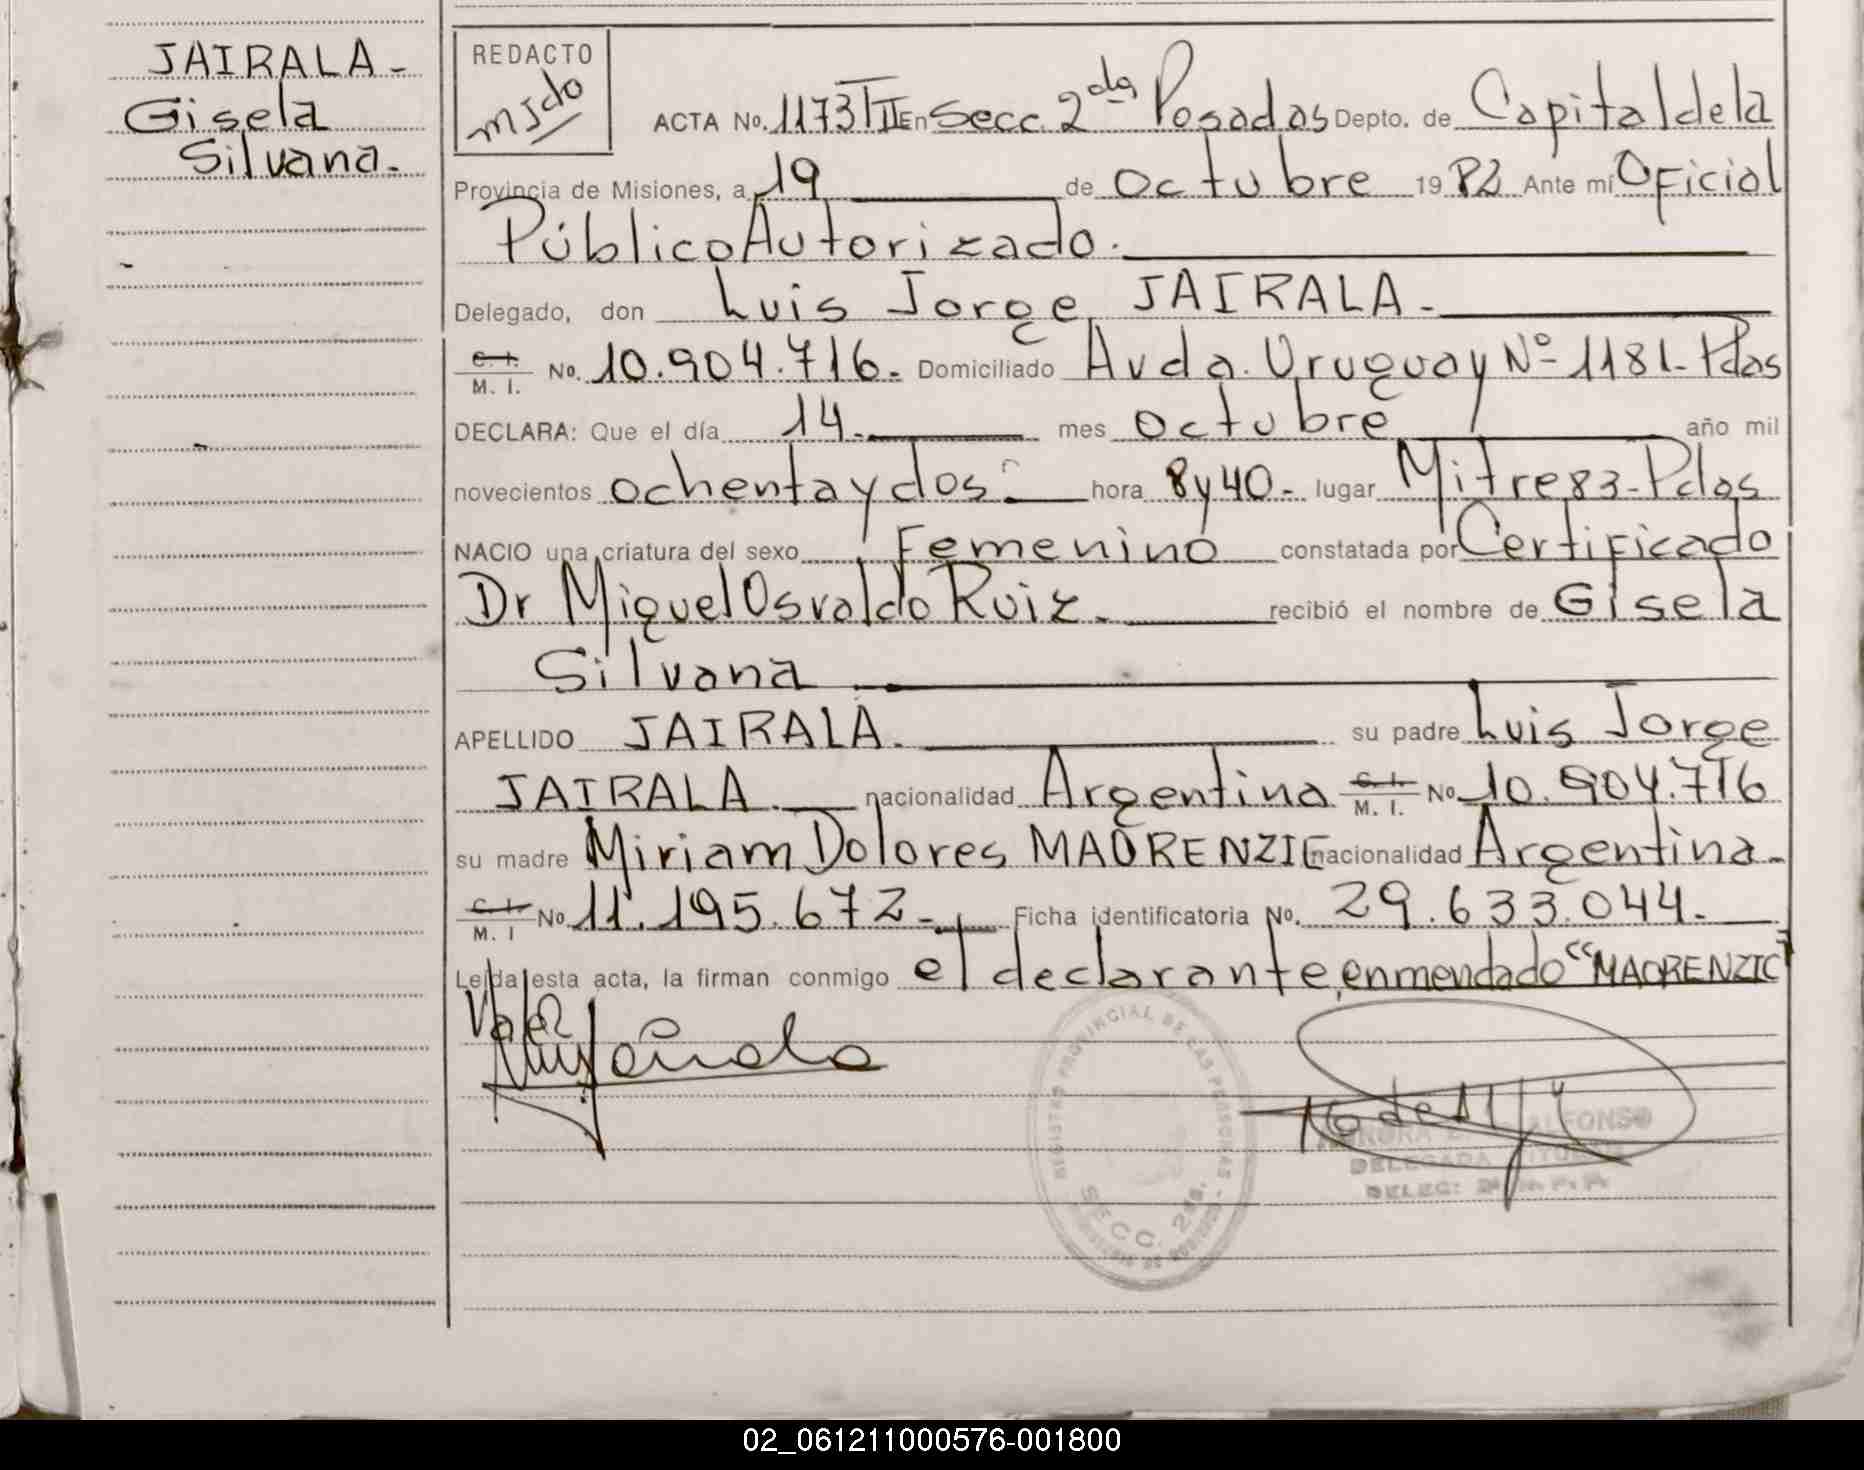 JAIRALA-
Gisela
Silvana.-
REDACTO
ACTA No. 1173TII En Secc. 2da Posadas Depto. de Capital de la
Provincia de Misiones, a 19 de octubre 1982 Ante mí Oficial
Público Autorizado.
Delegado, don Luis Jorge JAIRALA.-
C. I. M. I. No. 10.904.716.- Domiciliado Avda. Uruguay Nº 1181- Pdas
DECLARA: Que el día 14.- mes octubre año mil
novecientos ochenta y dos hora 8 y 40.- lugar Mitre 83- Pdas
NACIO una criatura del sexo Femenino constatada por Certificado
Dr Miguel Osvaldo Ruiz.- recibió el nombre de Gisela
Silvana
APELLIDO JAIRALA.- su padre Luis Jorge
JAIRALA.- nacionalidad Argentina C. I. M. I. No 10.904.716
su madre Miriam Dolores MAORENZIC nacionalidad Argentina.-
C. I. M. I No. 11.195.672.- Ficha identificatoria No. 29.633.044.-
Leída esta acta, la firman conmigo el declarante, enmendado "MAORENZIC"
Vale
REGISTRO PROVINCIAL DE LAS PERSONAS
SECC. 2da.
ALFONSO
DELEGADA TITULAR
02_061211000576-001800